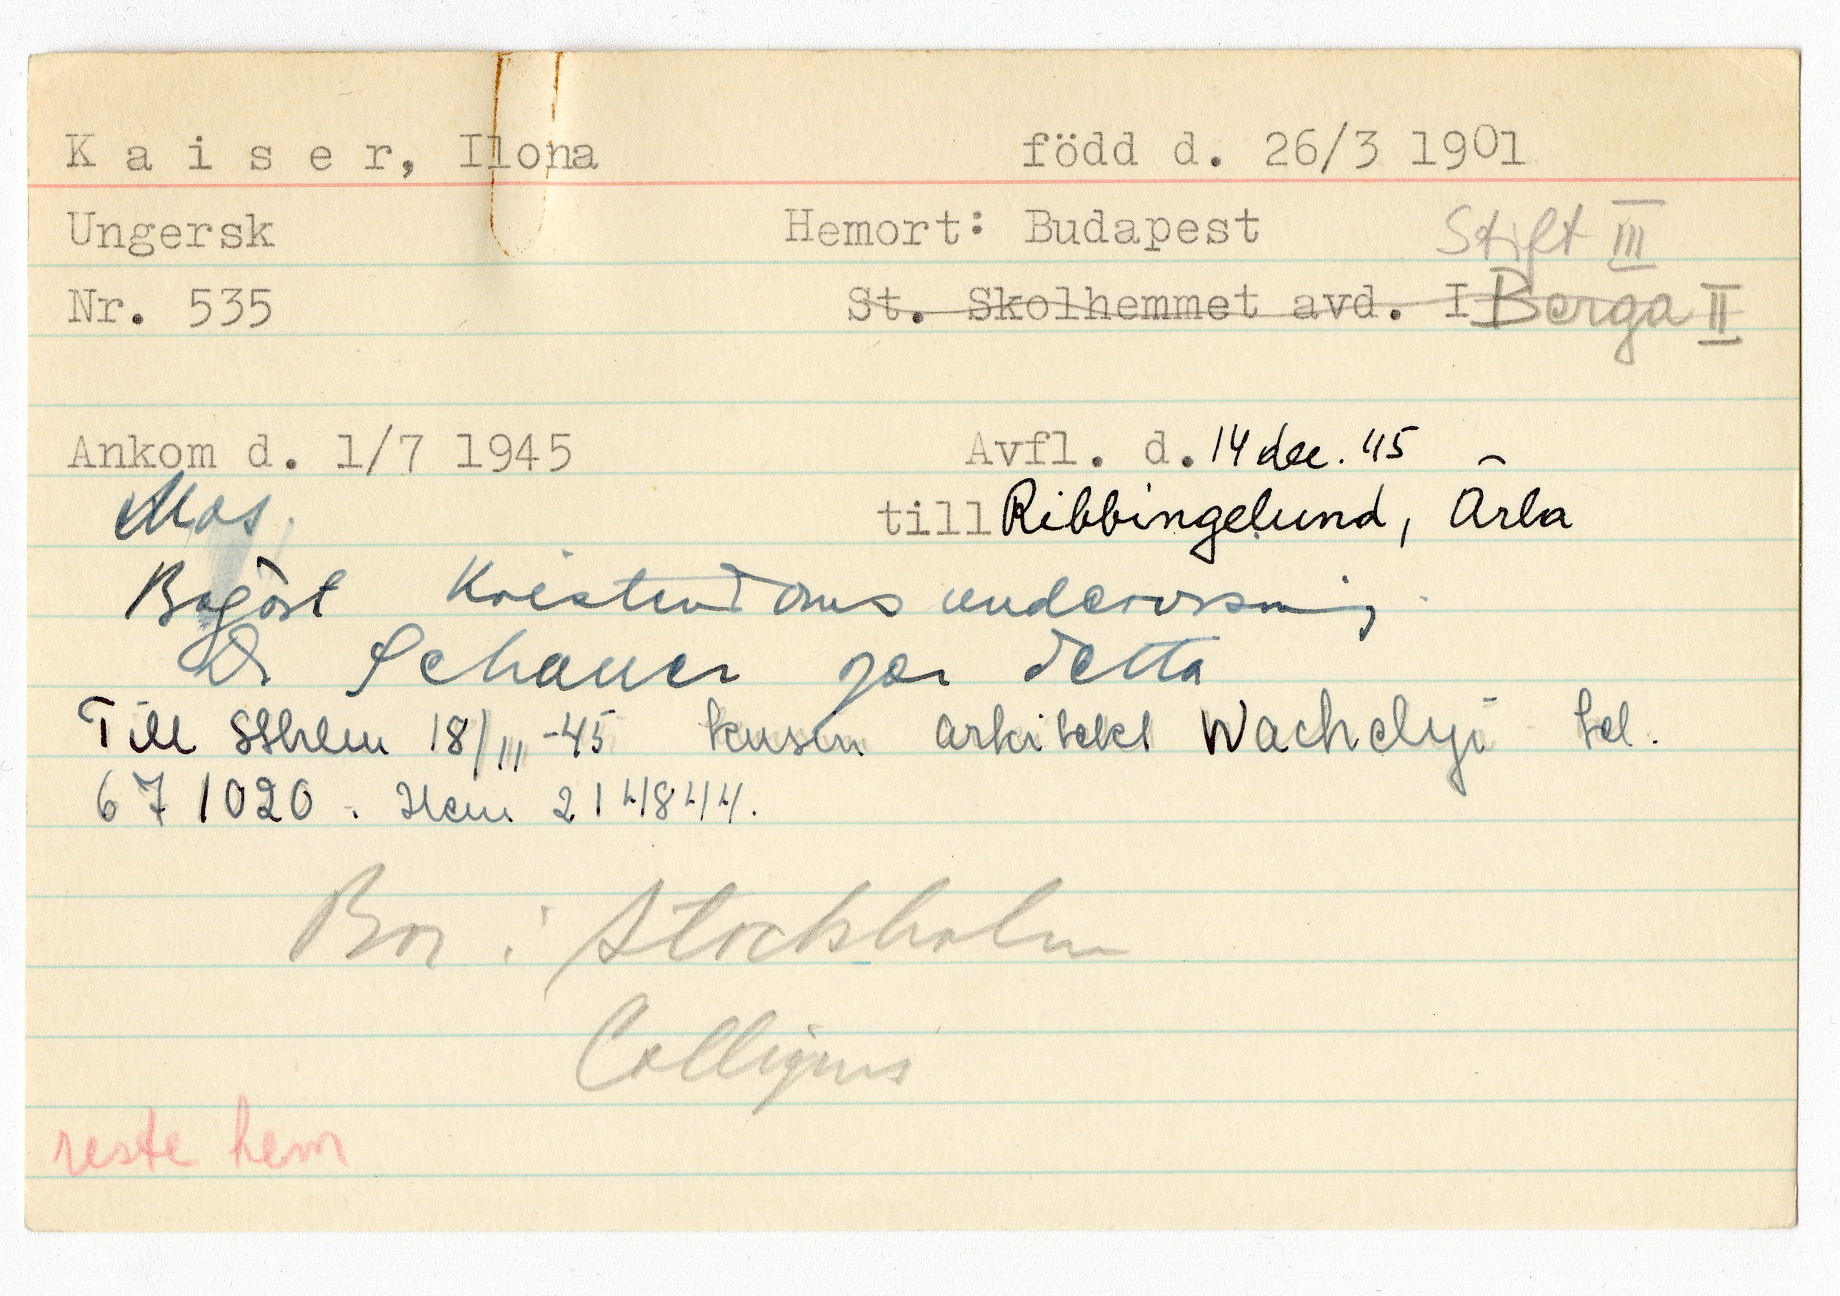 Kaiser, Ilona född d. 26/3 1901
Ungersk Hemort: Budapest Stift III
Nr. 535 St. Skolhemmet avd. I Berga II
Ankom d. 1/7 1945 Avfl. d. 14 dec. 45
Mos. till Ribbingelund, Ärla
Begärt Kristendomsundervisning.
Dr Schauer ger detta
Till Sthlm 18/III -45 kusin arkitekt tel.
671020. Hem 214844.
Bor i Stockholm
reste hem